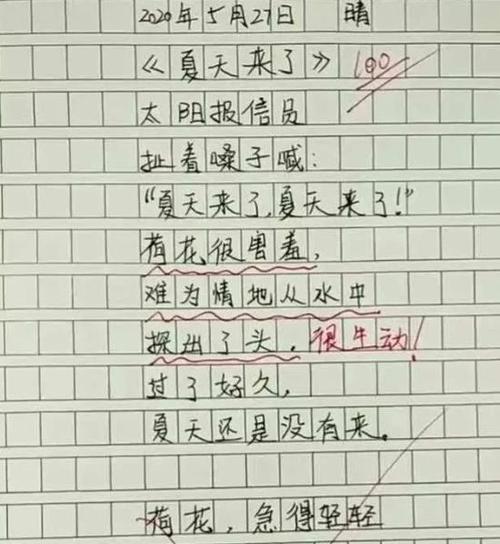 2020年5月27日 晴
《夏天来了》 100
太阳报信员
扯着嗓子喊:
“夏天来了,夏天来了!”
荷花很害羞,
难为情地从水中
探出了头, 很生动!
过了好久,
夏天还是没有来。
荷花,急得轻轻